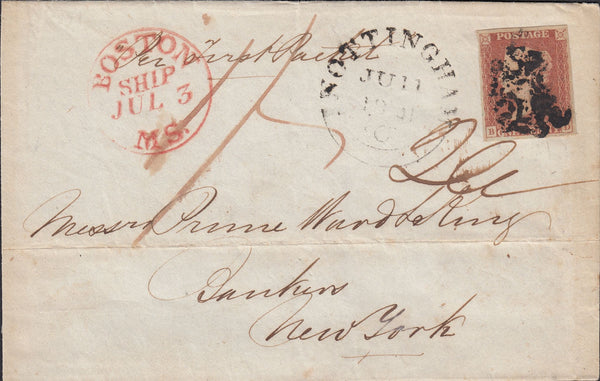 BOSTON
SHIP
JUL 3
MS.
Per First Packet
NOTTINGHAM
JU 11
POSTAGE
B
Messrs Prime Ward & King
Bankers
New York